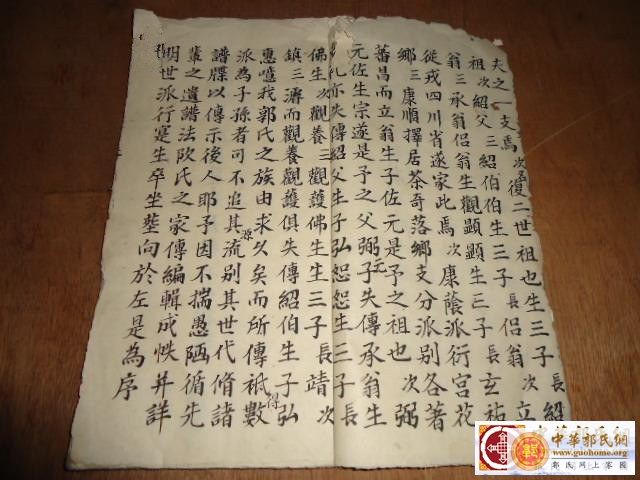 夫之一支焉次復二世祖也生三子長紹
祖次紹父三紹伯伯生三子長侶翁次立
翁三承翁侶翁生觀顯顯生三子長玄祐
從戎四川省遂家此焉次康蔭派衍宮花
鄉三康順擇居茶奇落鄉支分派別各著
蕃昌而立翁生子佐元是予之祖也次弼
元佐生宗遂是予之父弼元子失傳承翁生
礼亦失傳紹父生子弘恕恕生三子長
佛生次觀養三觀護佛生生三子長靖次
鎮三濟而觀養觀護俱失傳紹伯生子弘
惠噫我郭氏之族由求以矣而所傳祇得數
派為子孫者可不追其源流別其世代脩諸
譜牒以傳示後人耶予因不揣愚陋循先
輩之遺譜法欧氏之家傳編輯成帙并詳
明世派行寔生卒坐塋向於左是為序
中華郭氏網
www.guohome.org
郭氏网上家園